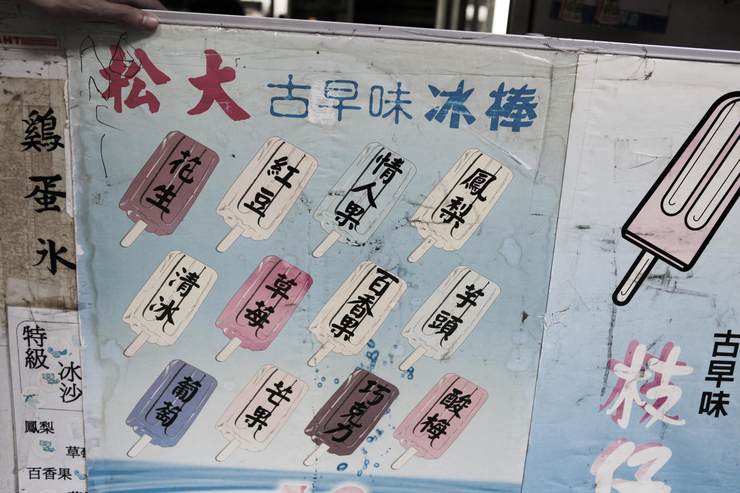 松大 古早味 冰棒
花生 紅豆 情人果 鳳梨
清冰 草莓 百香果 芋頭
葡萄 芒果 巧克力 酸梅
雞蛋氷
特級
冰沙
鳳梨
百香果
古早味
枝仔